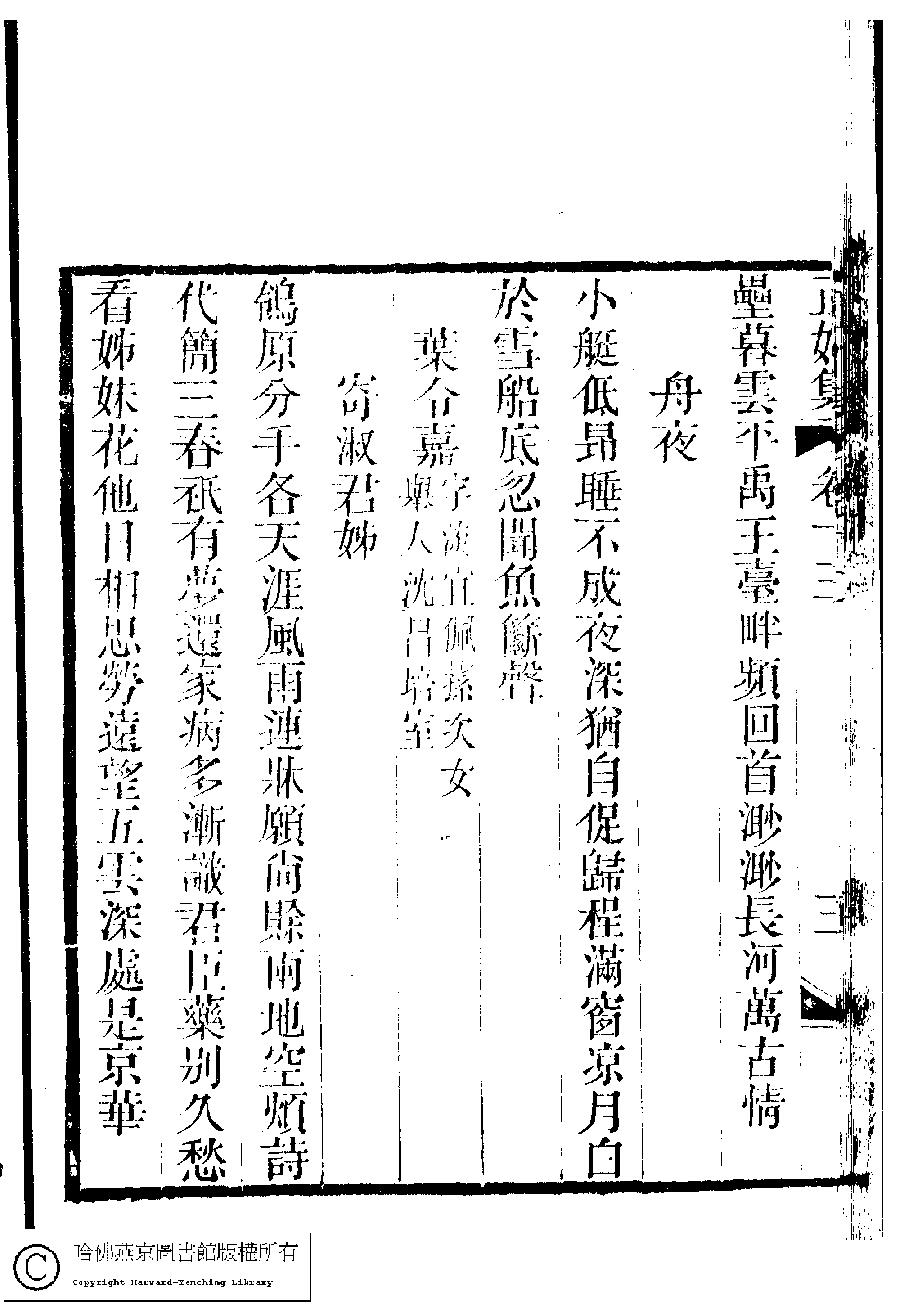 正始集 卷十三 三
壘暮雲平禹王臺畔頻回首渺渺長河萬古情
舟夜
小艇低昂睡不成夜深猶自促歸程滿窗凉月白
於雪船底忽聞魚斷聲
葉令嘉
字淡宜佩蓀次女
舉人沈昌培室
寄淑君姊
鴒原分手各天涯風雨連牀願尙賒兩地空煩詩
代簡三春祇有夢還家病多漸識君臣藥别久愁
看姊妹花他日相思勞遠望五雲深處是京華
哈佛燕京圖書館版權所有
Copyright Harvard-Yenching Library